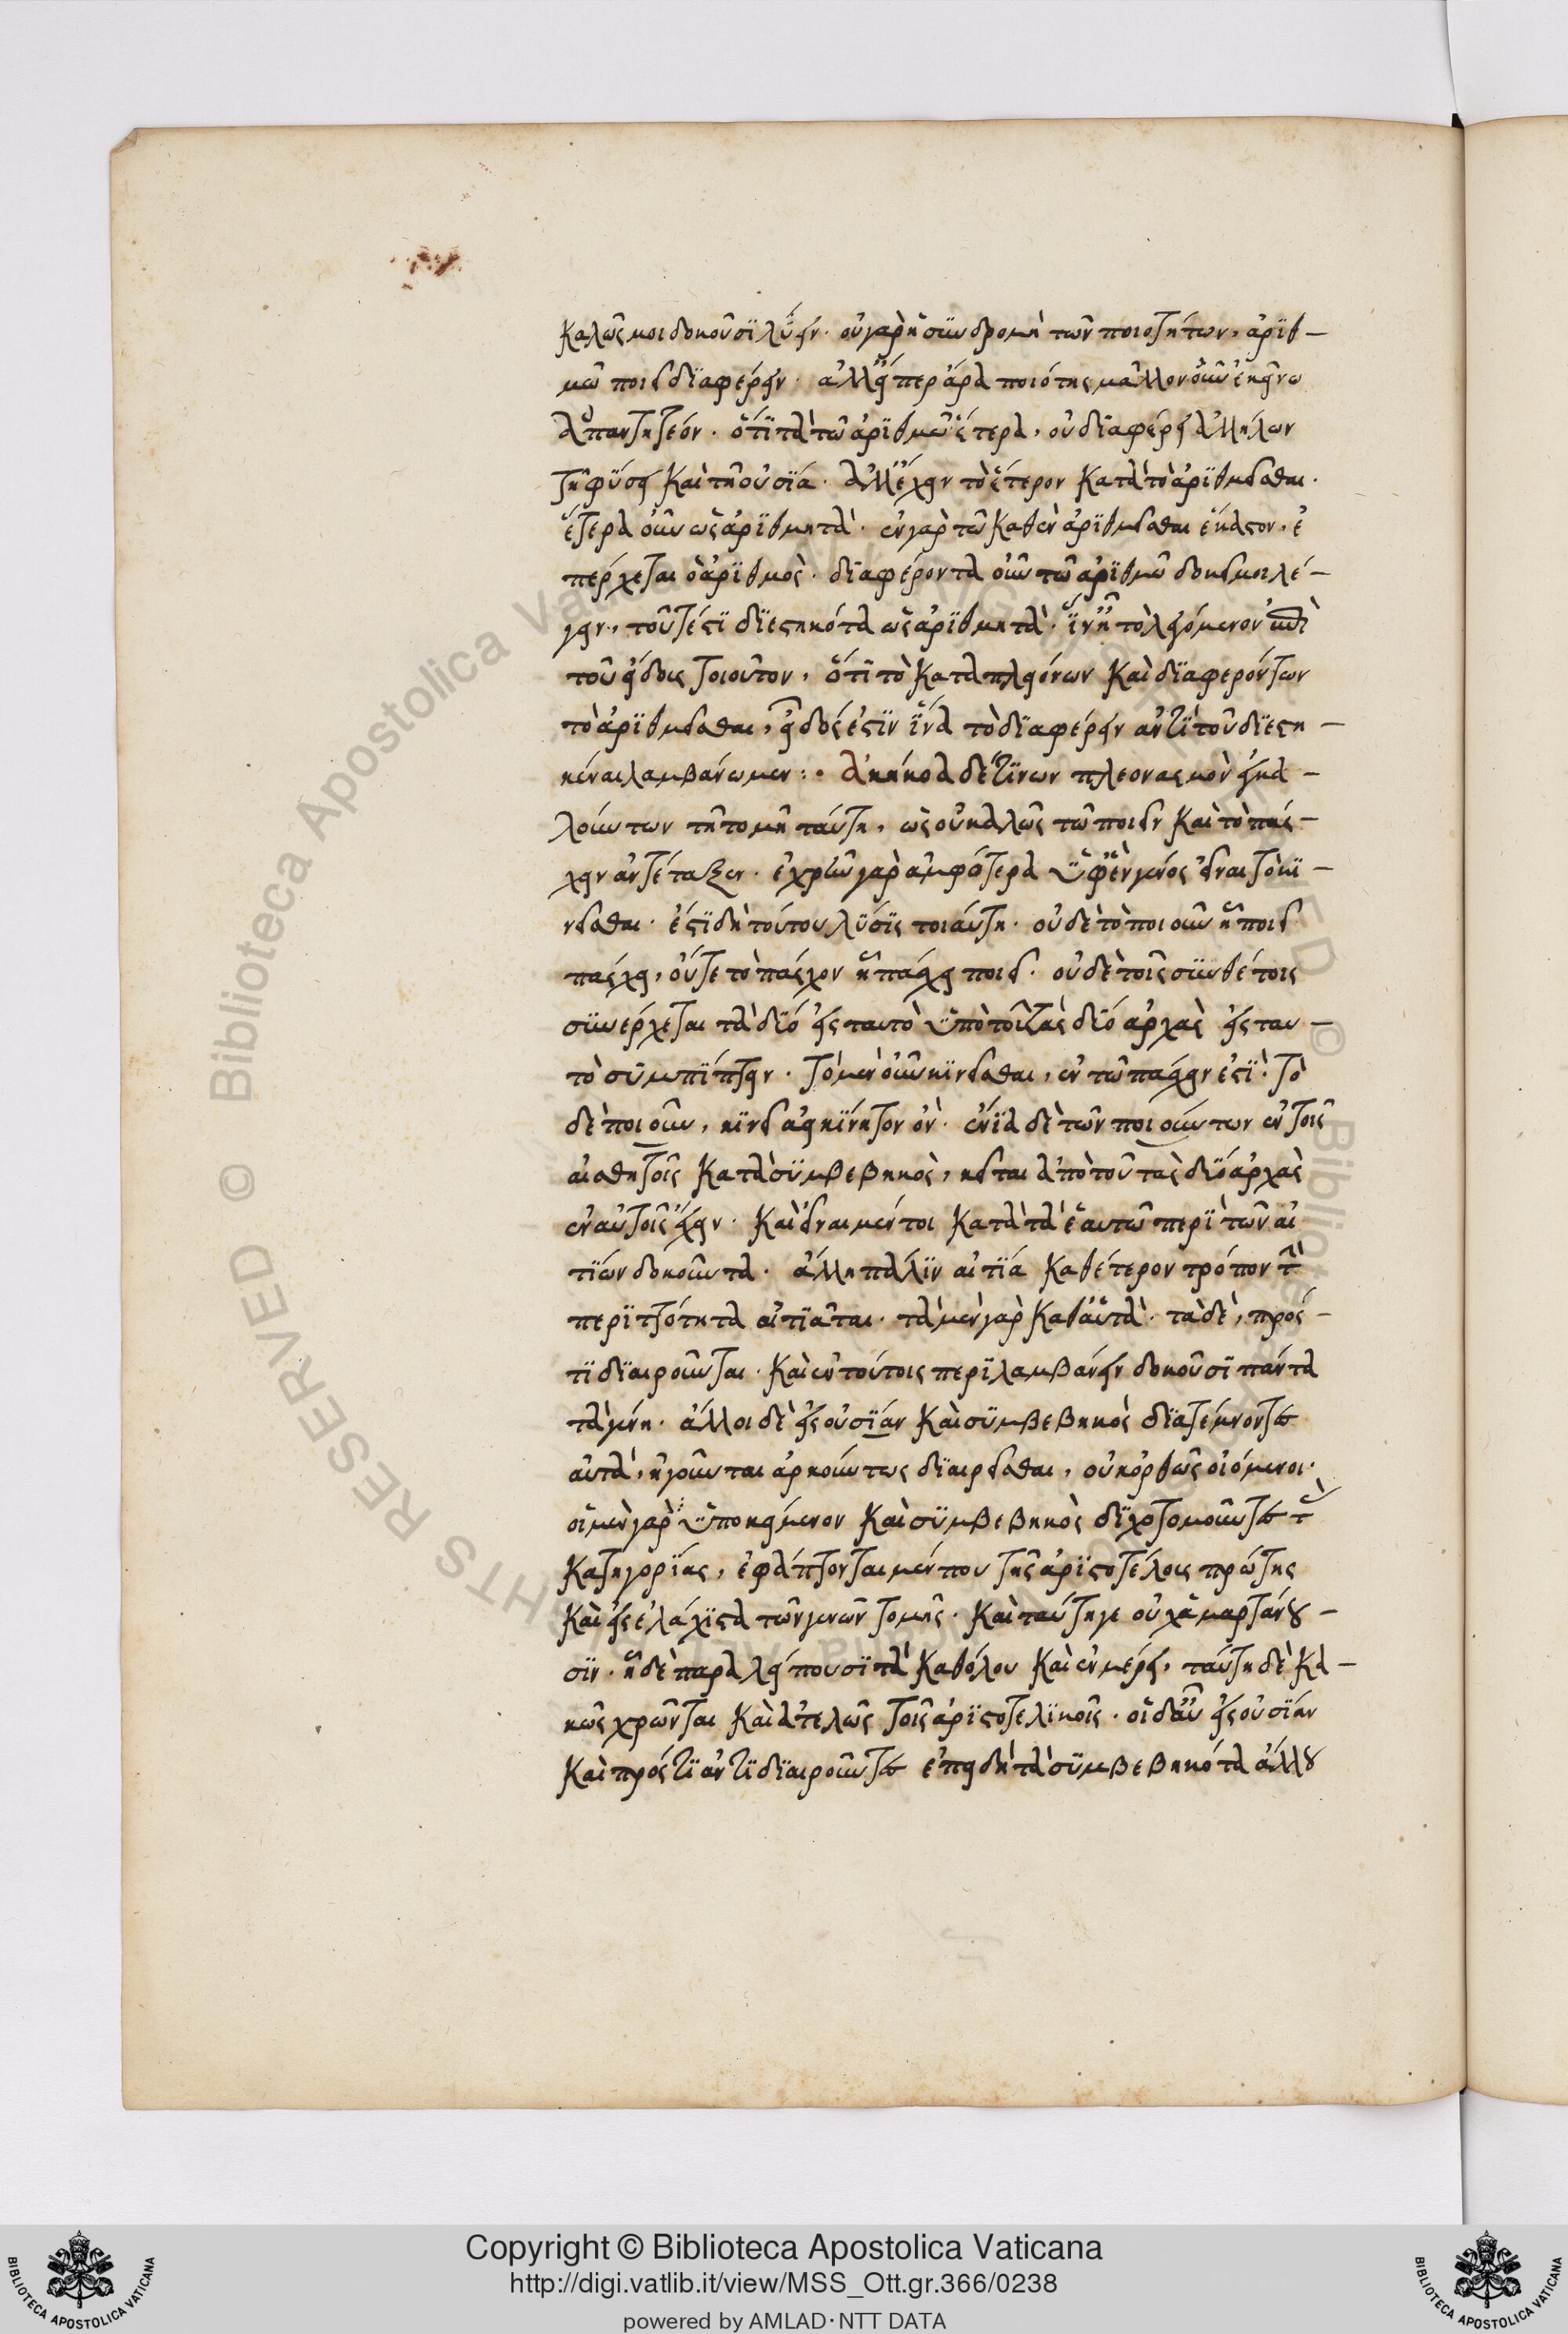 καλῶς μοι δοκοῦσι λύειν· οὐ γὰρ ἡ συνδρομὴ τῶν ποιοτήτων, ἀριθ-
μῶ ποιεῖ διαφέρειν· ἀλλ' εἴπερ ἄρα ποιότης μᾶλλον οὖν ἐκεῖνο
ἀπαντητέον· ὅτι τὰ τῶ ἀριθμῶ ἕτερα, οὐ διαφέρει ἀλλήλων
τῆ φύσει καὶ τῆ οὐσία· ἀλλ' ἔχειν τὸ ἕτερον κατὰ τὸ ἀριθμεῖσθαι·
ἕτερα οὖν ὡς ἀριθμητά· ἐν γὰρ τῶ καθ' ἓν ἀριθμεῖσθαι ἕκαστον, ἐ
πέρχεται ὁ ἀριθμός· διαφέροντα οὖν τῶ ἀριθμῶ δοκεῖ μοι λέ-
γειν, τουτέστι διεστηκότα ὡς ἀριθμητά· ἵν' ἦ τὸ λεγόμενον ἐπὶ
τοῦ εἴδους τοιοῦτον, ὅτι τὸ κατὰ πλειόνων καὶ διαφερόντων
τὸ ἀριθμεῖσθαι, εἶδός ἐστιν ἵνα τὸ διαφέρειν ἀντὶ τοῦ διεστη-
κέναι λαμβάνωμεν: · ἀκήκοα δέ τινων πλεονασμὸν ἐγκα-
λούντων τῆ τομῆ ταύτη, ὡς οὐ καλῶς τῶ ποιεῖν καὶ τὸ πάσ-
χειν ἀντέταξεν· ἐχρῆν γὰρ ἀμφότερα ὑφ' ἓν γένος εἶναι τὸ κι-
νεῖσθαι· ἔστι δὴ τούτου λύσις τοιαύτη· οὐδὲ τὸ ποιοῦν ἧ ποιεῖ
πάσχει, οὔτε τὸ πάσχον ἧ πάσχει ποιεῖ· οὐδὲ τοῖς συνθέτοις
συνέρχεται τὰ δύο εἰς ταυτὸ ὑπὸ τοῦ τὰς δύο ἀρχὰς εἰς ταυ-
τὸ συμπίπτειν· τὸ μὲν οὖν κινεῖσθαι, ἐν τῶ πάσχειν ἐστί· τὸ
δὲ ποιοῦν, κινεῖ ἀεικίνητον ὄν· ἔνια δὲ τῶν ποιούντων ἐν τοῖς
αἰσθητοῖς κατὰ συμβεβηκὸς, κεῖται ἀπὸ τοῦ τὰς δύο ἀρχὰς
ἐν αὐτοῖς ἔχειν· καὶ εἶναι μέντοι κατὰ τὰ ἑαυτῶν περὶ τῶν αἰ
τίων δοκοῦντα· ἄλλη πάλιν αἰτία καθ' ἕτερον τρόπον τὴν
περιττότητα αἰτιᾶται· τὰ μὲν γὰρ καθ' αὑτά· τὰ δὲ, πρός-
τι διαιροῦνται· καὶ ἐν τούτοις περιλαμβάνειν δοκοῦσι πάντα
τὰ γένη· ἄλλοι δὲ εἰς οὐσίαν καὶ συμβεβηκὸς διατέμνοντες
αὐτὰ, ἡγοῦνται ἀρκούντως διαιρεῖσθαι, οὐκ ὀρθῶς οἰόμενοι·
οἱ μὲν γὰρ ὑποκείμενον καὶ συμβεβηκὸς διχοτομοῦντες τὰς
κατηγορίας, ἐφάπτονται μέν που τῆς ἀριστοτέλους πρώτης
καὶ εἰς ἐλάχιστα τῶν γενῶν τομῆς· καὶ ταύτη γε οὐχ ἁμαρτάνου-
σιν· ἧ δὲ παραλείπουσι τὰ καθόλου καὶ ἐν μέρει, ταύτη δὲ κα-
κῶς χρῶνται καὶ ἀτελῶς τοῖς ἀριστοτελικοῖς· οἱ δ' αὖ εἰς οὐσίαν
καὶ πρός τι ἀντιδιαιροῦντες ἐπειδὴ τὰ συμβεβηκότα ἄλλου
Copyright © Biblioteca Apostolica Vaticana
http://digi.vatlib.it/view/MSS_Ott.gr.366/0238
powered by AMLAD·NTT DATA